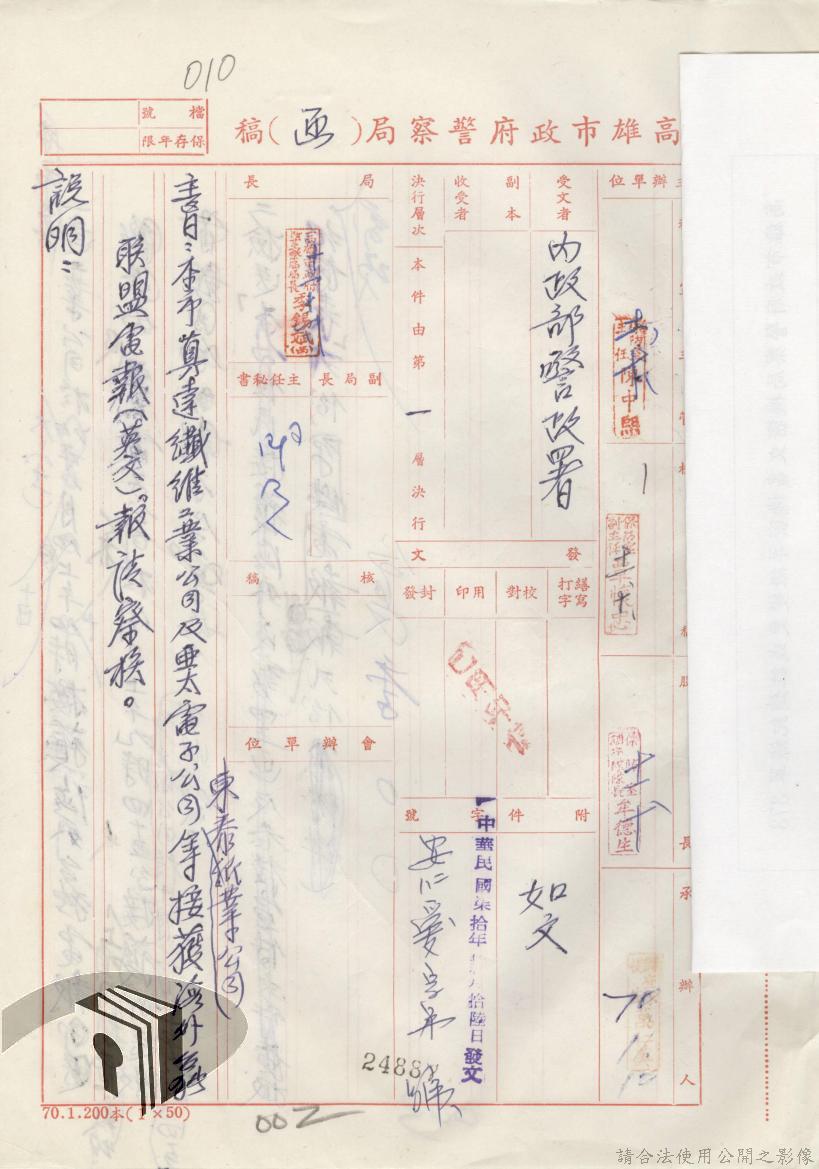 010
檔號
保存年限
高雄市政府警察局(函)稿
主辦單位
受文者
內政部警政署
副本
收受者
決行層次
本件由第一層決行
發文
繕寫打字
校對
用印
封發
附件
如文
字號
中華民國柒拾年 拾陸日發文
安仁愛 字第
2488
號
局長
李錫斌
副局長
主任秘書
核稿
會辦單位
股長
承辦人
70
主旨:本市真達纖維工業公司及亞太電子公司
東泰紙業公司
等接獲海外
聯盟電報(英文),報請察核。
說明:
70.1.200本(1×50)
002
請合法使用公開之影像